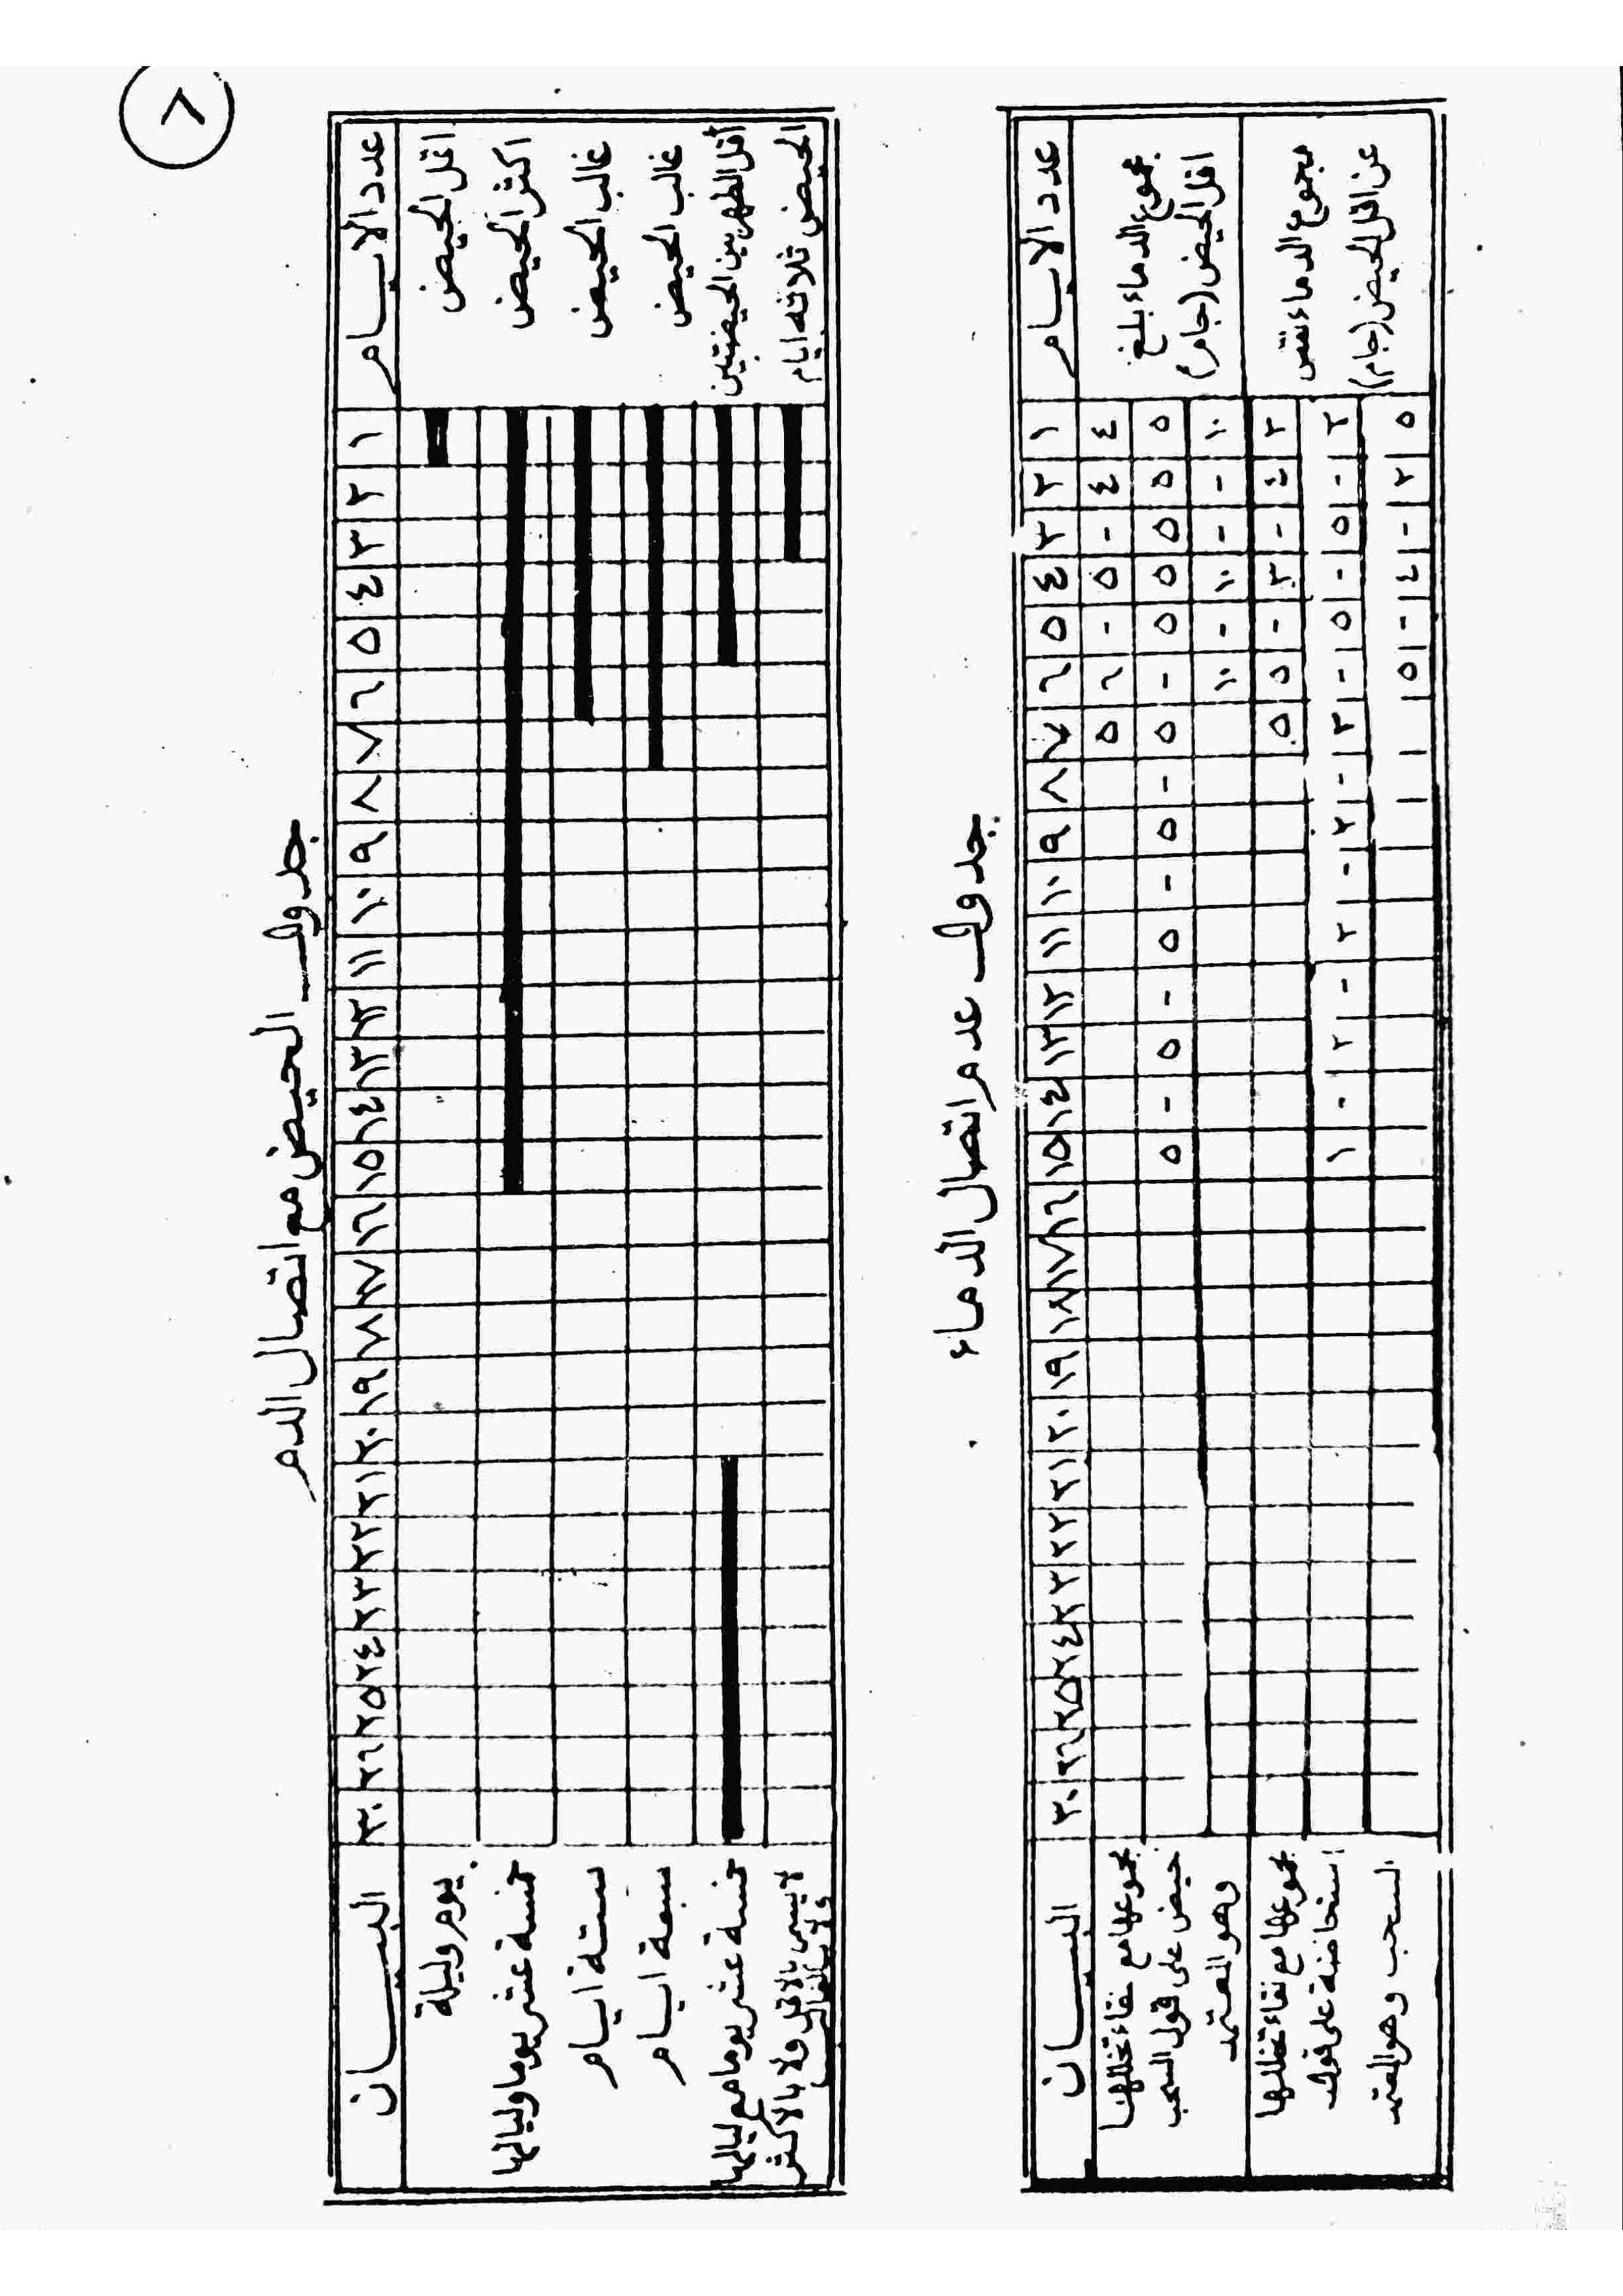 ٨
جدول الحيض مع اتصال الدم
عدد الأيام ١ ٢ ٣ ٤ ٥ ٦ ٧ ٨ ٩ ١٠ ١١ ١٢ ١٣ ١٤ ١٥ ١٦ ١٧ ١٨ ١٩ ٢٠ ٢١ ٢٢ ٢٣ ٢٤ ٢٥ ٢٦ ٣٠ البيان
اقل الحيض يوم وليلة
اكثر الحيض خمسة عشر يوما ولياليها
غالب الحيض ستة ايام
غالب الحيض سبعة ايام
أقل الطهر بين الحيضتين خمسة عشر يوما مع لياليها
الحيض ثلاثة ايام لا يسمى بالاقل ولا بالاكثر ولا بالغالب
جدول عدم اتصال الدماء
عدد الايام ١ ٢ ٣ ٤ ٥ ٦ ٧ ٨ ٩ ١٠ ١١ ١٢ ١٣ ١٤ ١٥ ١٦ ١٧ ١٨ ١٩ ٢٠ ٢١ ٢٢ ٢٣ ٢٤ ٢٥ ٢٦ ٣٠ البيان
مجموع الدماء بلغ ٤ ٤ - ٥ - ٦ ٥ مجموعها مع نقاء تخللها
٥ ٥ ٥ ٥ ٥ - ٥ - ٥ - ٥ - ٥ - ٥ حيض على قول السحب
اقل الحيض (جام) ١٠ - - ١٠ - ١٠ وهو المعتمد
مجموع الدماء نقص ٣ ٤ - ٣ - ٥ ٥ مجموعها مع نقاء تخللها
٣ - ٥ - ٥ - ٣ - ٢ - ٢ - ٢ - ١ استحاضة على قول
عن اقل الحيض (جام) ٥ ٢ - ٤ - ٥ السحب وهو المعتمد